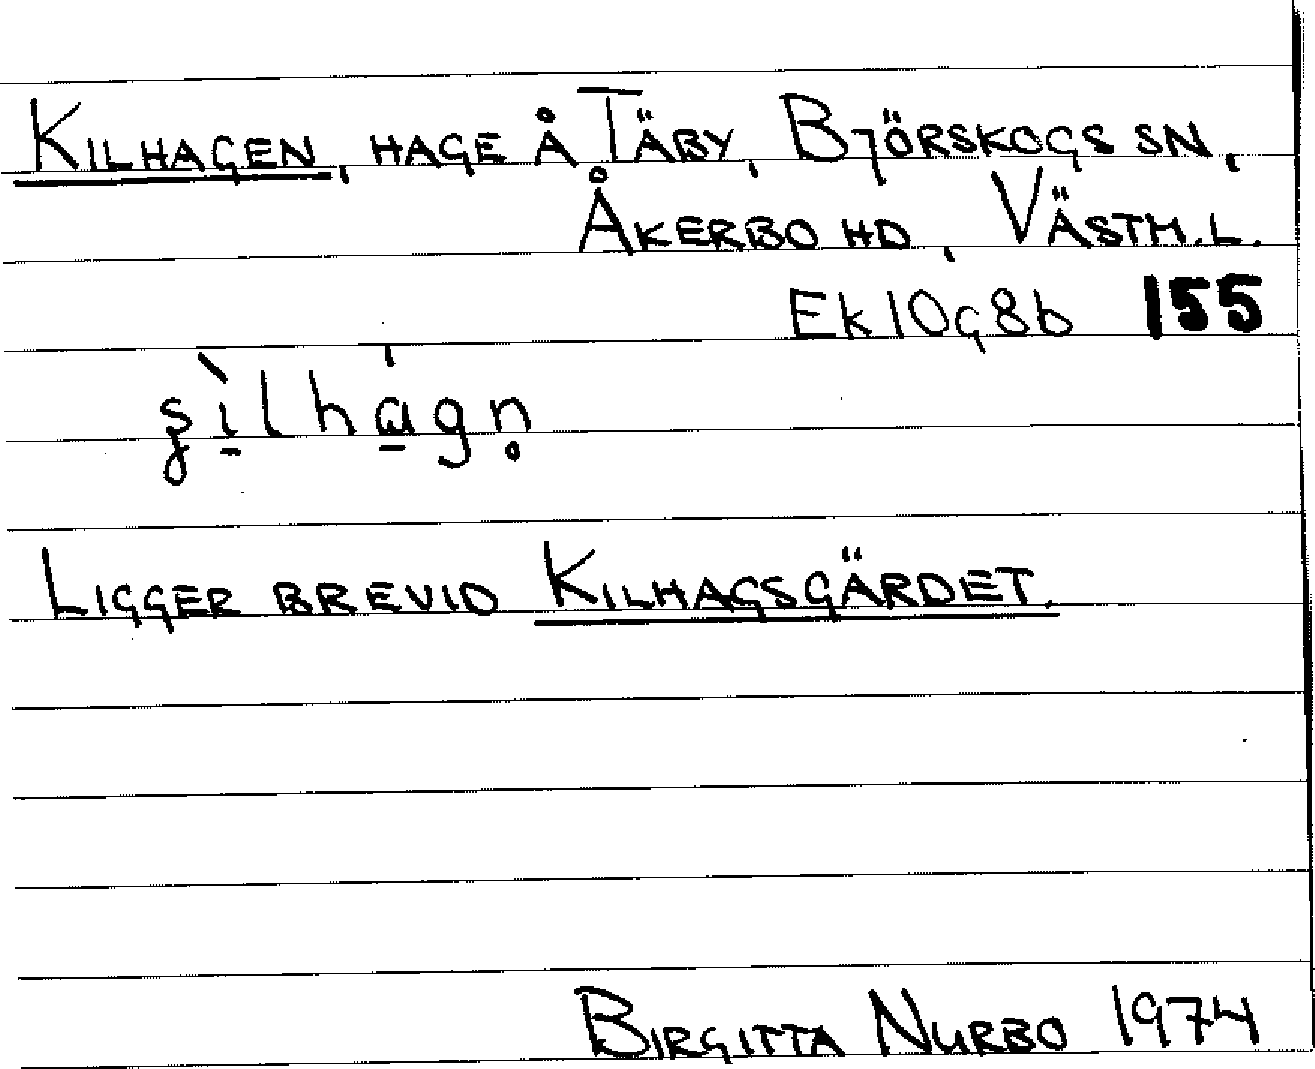 KILHAGEN, HAGE Å TÄBY, BJÖRSKOGS SN,
ÅKERBO HD, VÄSTM.L.
Ek 10g8b 155
LIGGER BREVID KILHAGSGÄRDET.
BIRGITTA NURBO 1974